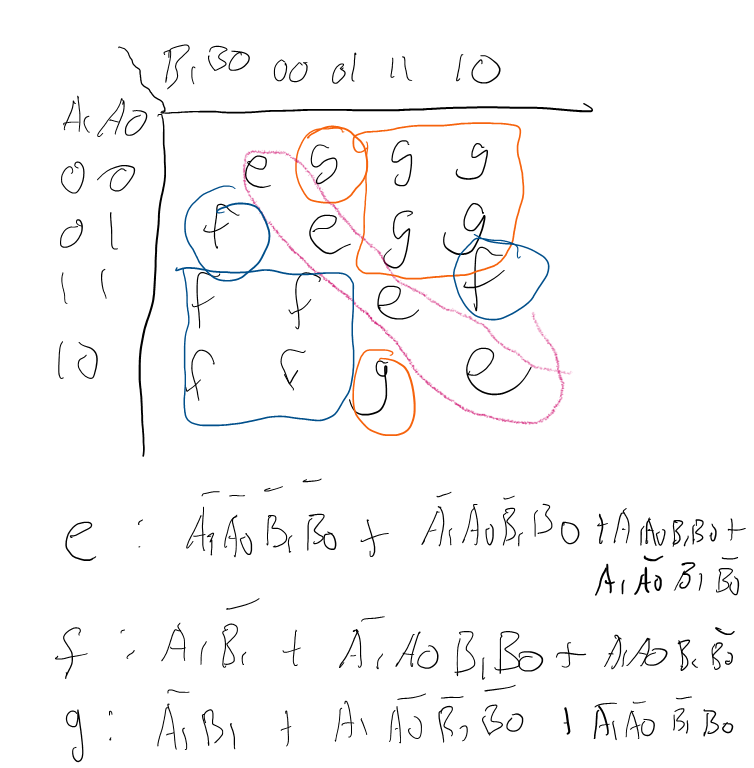 B₁B0 00 01 11 10
A₁A0
00 e g g g
01 f e g g
11 f f e f
10 f f g e
e : A̅₁A̅0B̅₁B̅0 + A̅₁A0B̅₁B0 + A₁A0B₁B0 +
A₁A̅0B₁B̅0
f : A₁B̅₁ + A̅₁A0B₁B0 + A₁A0B₁B̅0
g : A̅₁B₁ + A₁A̅0B̅₁B̅0 + A̅₁A̅0B̅₁B0